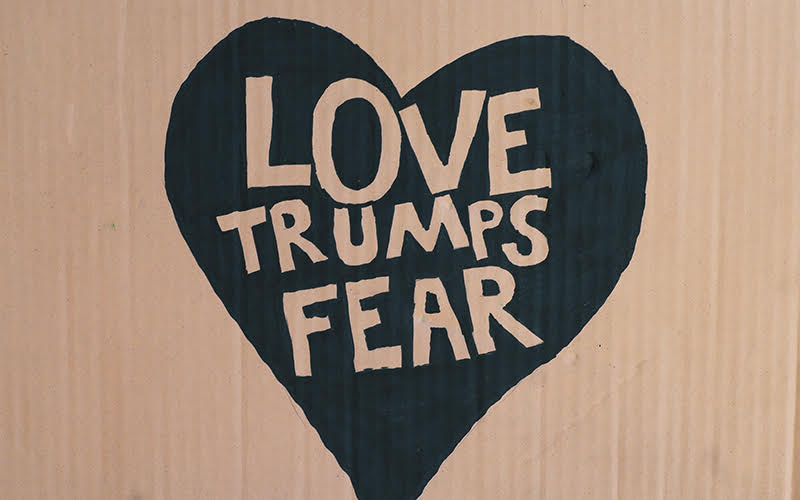 LOVE
TRUMPS
FEAR